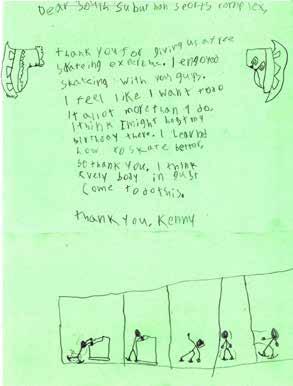 Dear South Suburban sports complex,
Thank you for giving us a free
skateing experience. I enjoyed
skateing with you guys.
I feel like I want to do
it a lot more than I do.
I think I might host my
birthday there. I learnd
how to skate better,
so thank you. I think
every body in
come to do this.
Thank you, Kenny